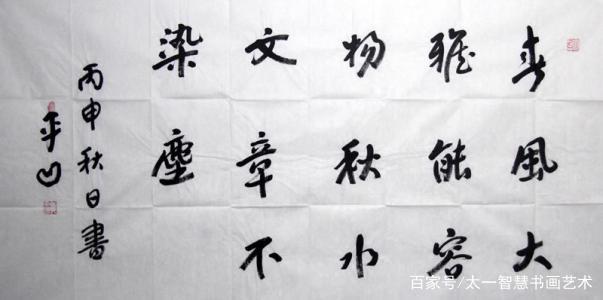 春風大
雅能容
物秋水
文章不
染塵
丙申秋日書
平凹
百家号/太一智慧书画艺术